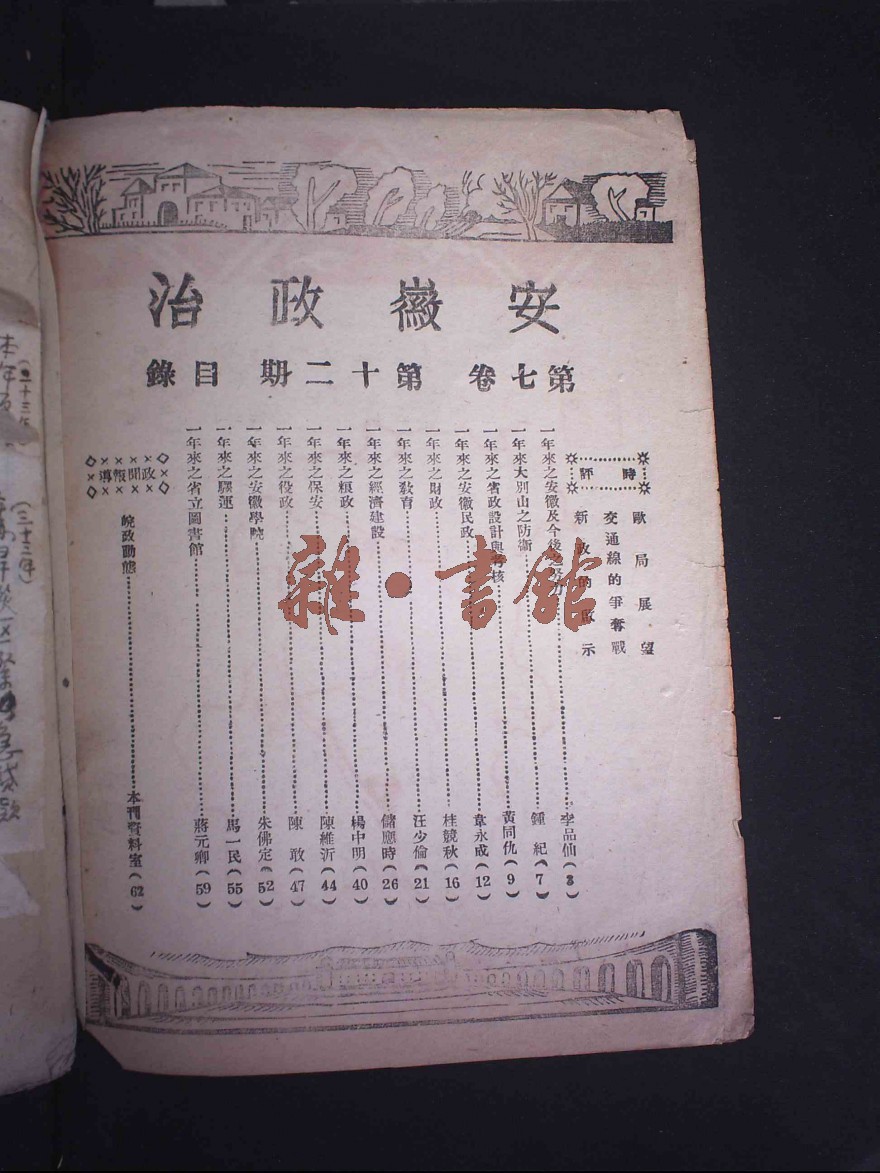 安徽政治
第七卷 第十二期 目錄
時評
歐局展望
交通線的爭奪戰
新政的啟示
一年來之安徽及今後 李品仙(3)
一年來大別山之防衞 鍾紀(7)
一年來之省政設計與考核 黃同仇(9)
一年來之安徽民政 韋永成(12)
一年來之財政 桂競秋(16)
一年來之敎育 汪少倫(21)
一年來之經濟建設 儲應時(26)
一年來之糧政 楊中明(40)
一年來之保安 陳維沂(44)
一年來之役政 陳敢(47)
一年來之安徽學院 朱佛定(52)
一年來之驛運 馬一民(55)
一年來之省立圖書館 蔣元卿(59)
政聞報導
皖政動態 本刊資料室(62)
雜·書館
(三十三年)